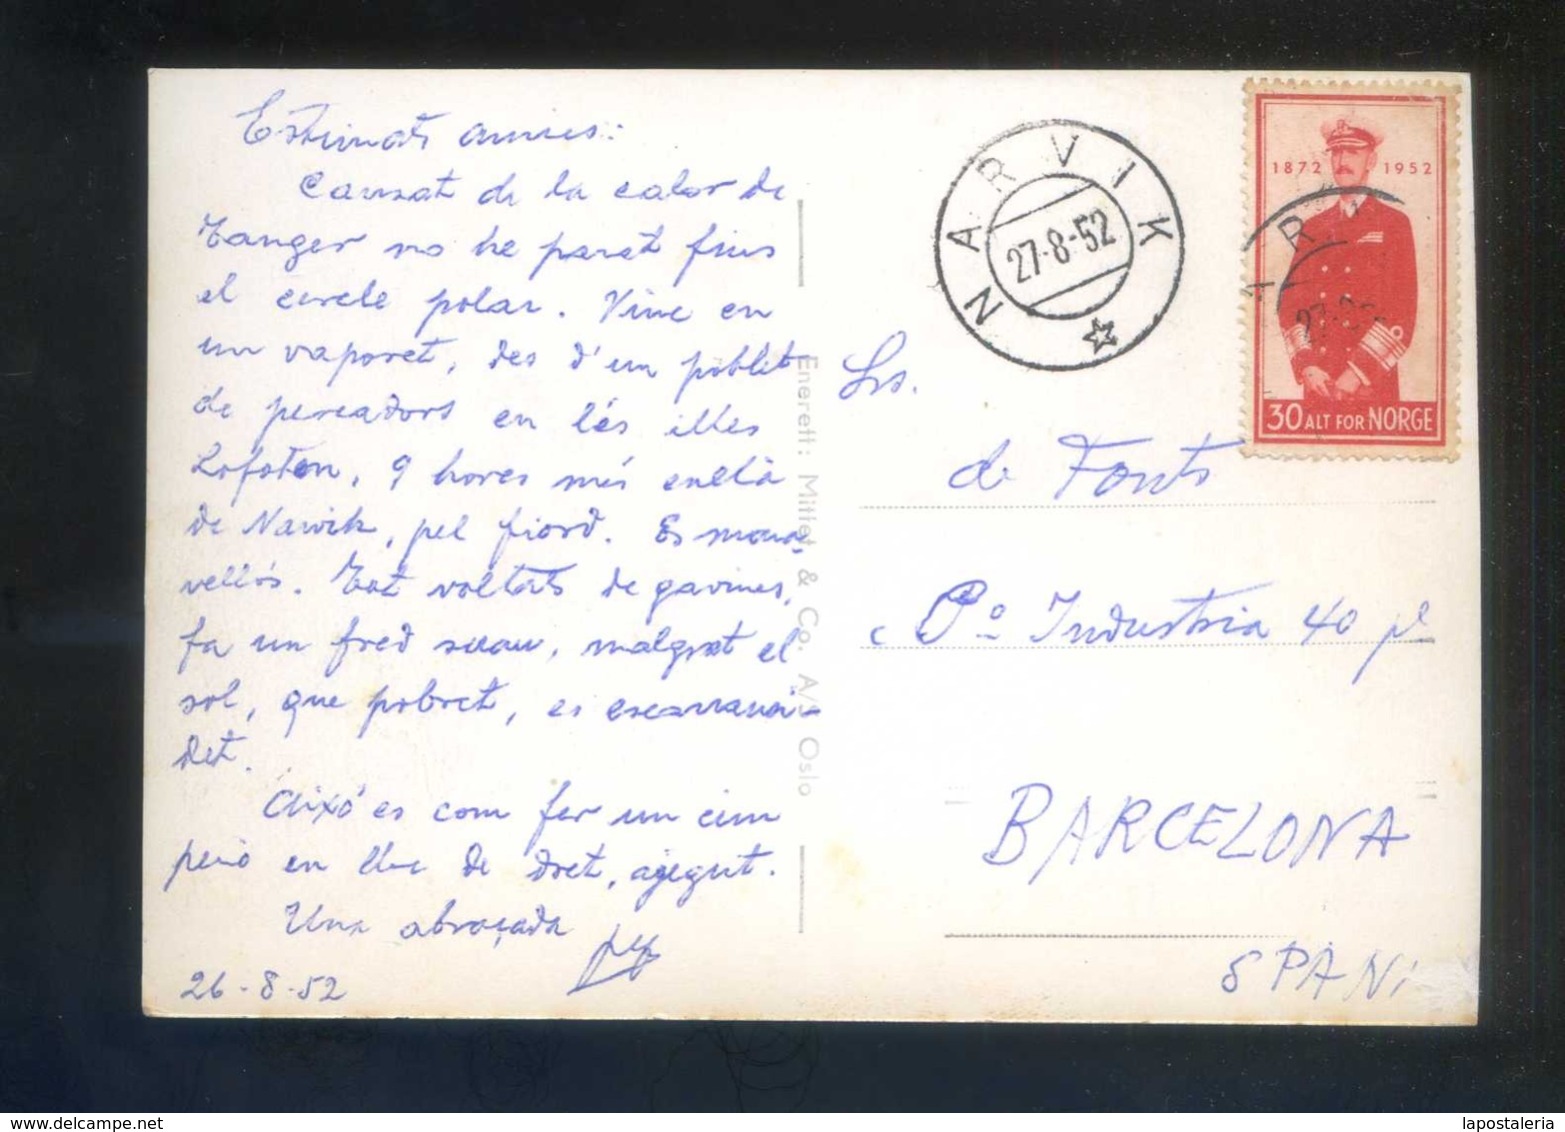 Estimats amics:
Cansat de la calor de
Tanger no he parat fins
el cercle polar. Vinc en
un vaporet, des d'un poblet
de pescadors en les illes
Lofoten, 9 hores més enllà
de Narvik, pel fiord. Es mara-
vellós. Tot voltats de gavines,
fa un fred suau, malgrat el
sol, que pobret, es escarransi-
det.
Això es com fer un cim
però en lloc de dret, ajegut.
Una abraçada
26-8-52
Enerett: Mittet & Co. A/S Oslo
NARVIK
27-8-52
1872 1952
30 ALT FOR NORGE
Srs.
de Fonts
Pº Industria 40 pl
BARCELONA
SPANI
lapostaleria